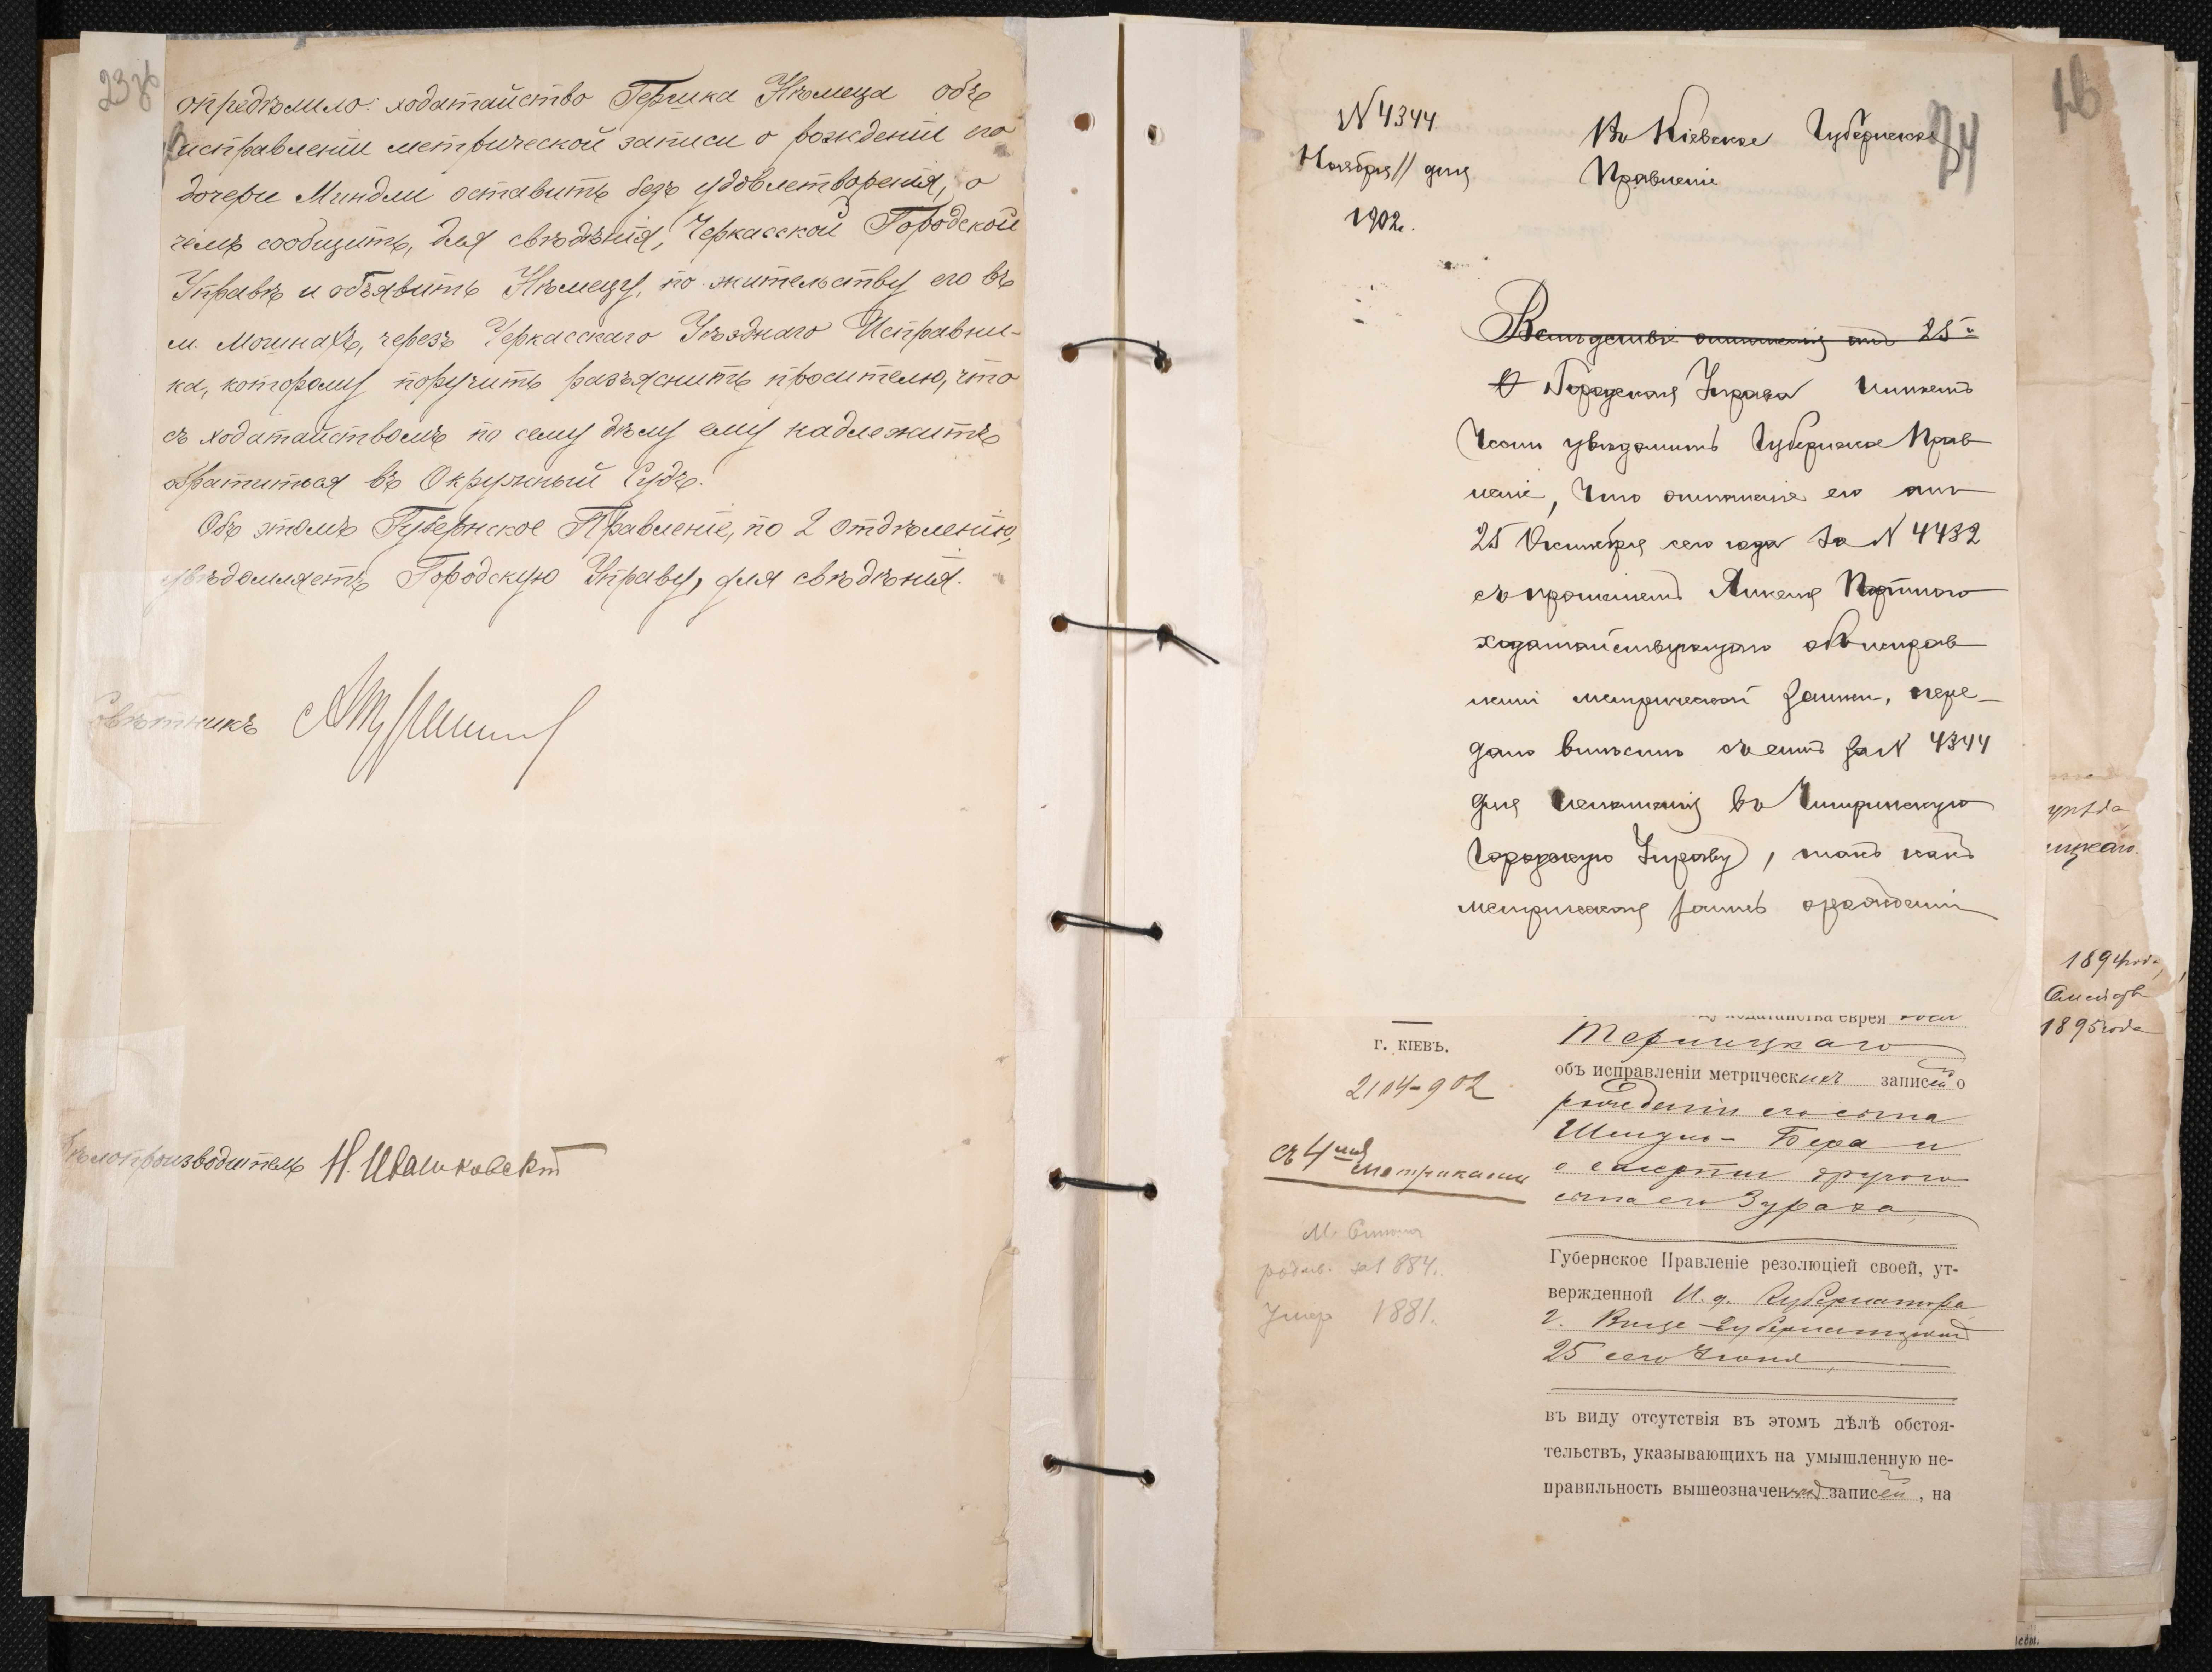 23об
опредѣлило: ходатайство Гершка Нѣмеца объ
исправленіи метрической записи о рожденіи его
дочери Миндли оставить безъ удовлетворенія, о
чемъ сообщить, для свѣдѣнія, Черкасской Городской
Управѣ и объявить Нѣмецу, по жительству его въ
м. Мошнахъ, черезъ Черкасскаго Уѣзднаго Исправни-
ка, которому поручить разъяснить просителю, что
съ ходатайствомъ по сему дѣлу ему надлежитъ
обратиться въ Окружный Судъ.
Объ этомъ Губернское Правленіе, по 2 отдѣленію,
увѣдомляетъ Городскую Управу, для свѣдѣнія.
Совѣтникъ
Дѣлопроизводитель Н. Ивашковскій
N 4344
Ноября 11 дня
1902.
Въ Кіевское Губернское
Правленіе
24
Вслѣдствіе отношенія отъ 25го
Городская Управа имѣетъ
честь увѣдомить Губернское Прав
леніе, что отношеніе его отъ
25 Октября сего года за N 4432
съ прошеніемъ Янкеля Портного
ходатайствующаго объ исправ
леніи метрической записи, пере-
дано вмѣстѣ съ симъ за N 4344
для исполненія въ Чигиринскую
Городскую Управу, такъ какъ
метрическая запись о рожденіи
г. КІЕВЪ.
2104-902
съ 4мя метриками
родив. 1884.
Умер 1881.
ходатайства еврея
Терницкаго
объ исправленіи метрическихъ записей о
рожденіи его сына
Шендль-Бера и
о смерти другого
сына его Зураха
Губернское Правленіе резолюціей своей, ут-
вержденной И. д. Губернатора
г. Вице-Губернаторомъ
25 сего Іюня
въ виду отсутствія въ этомъ дѣлѣ обстоя-
тельствъ, указывающихъ на умышленную не-
правильность вышеозначен записей, на
46
уѣзда
ицкаго.
1894 года,
1895 года